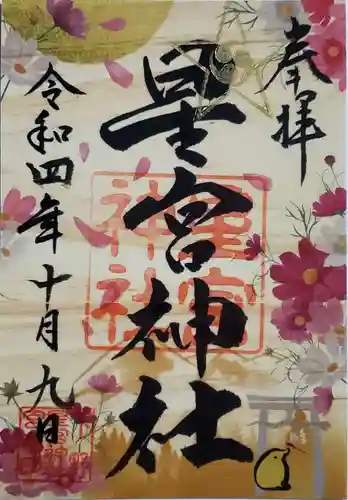 奉拝
星宮神社
令和四年十月九日
星宮
神社